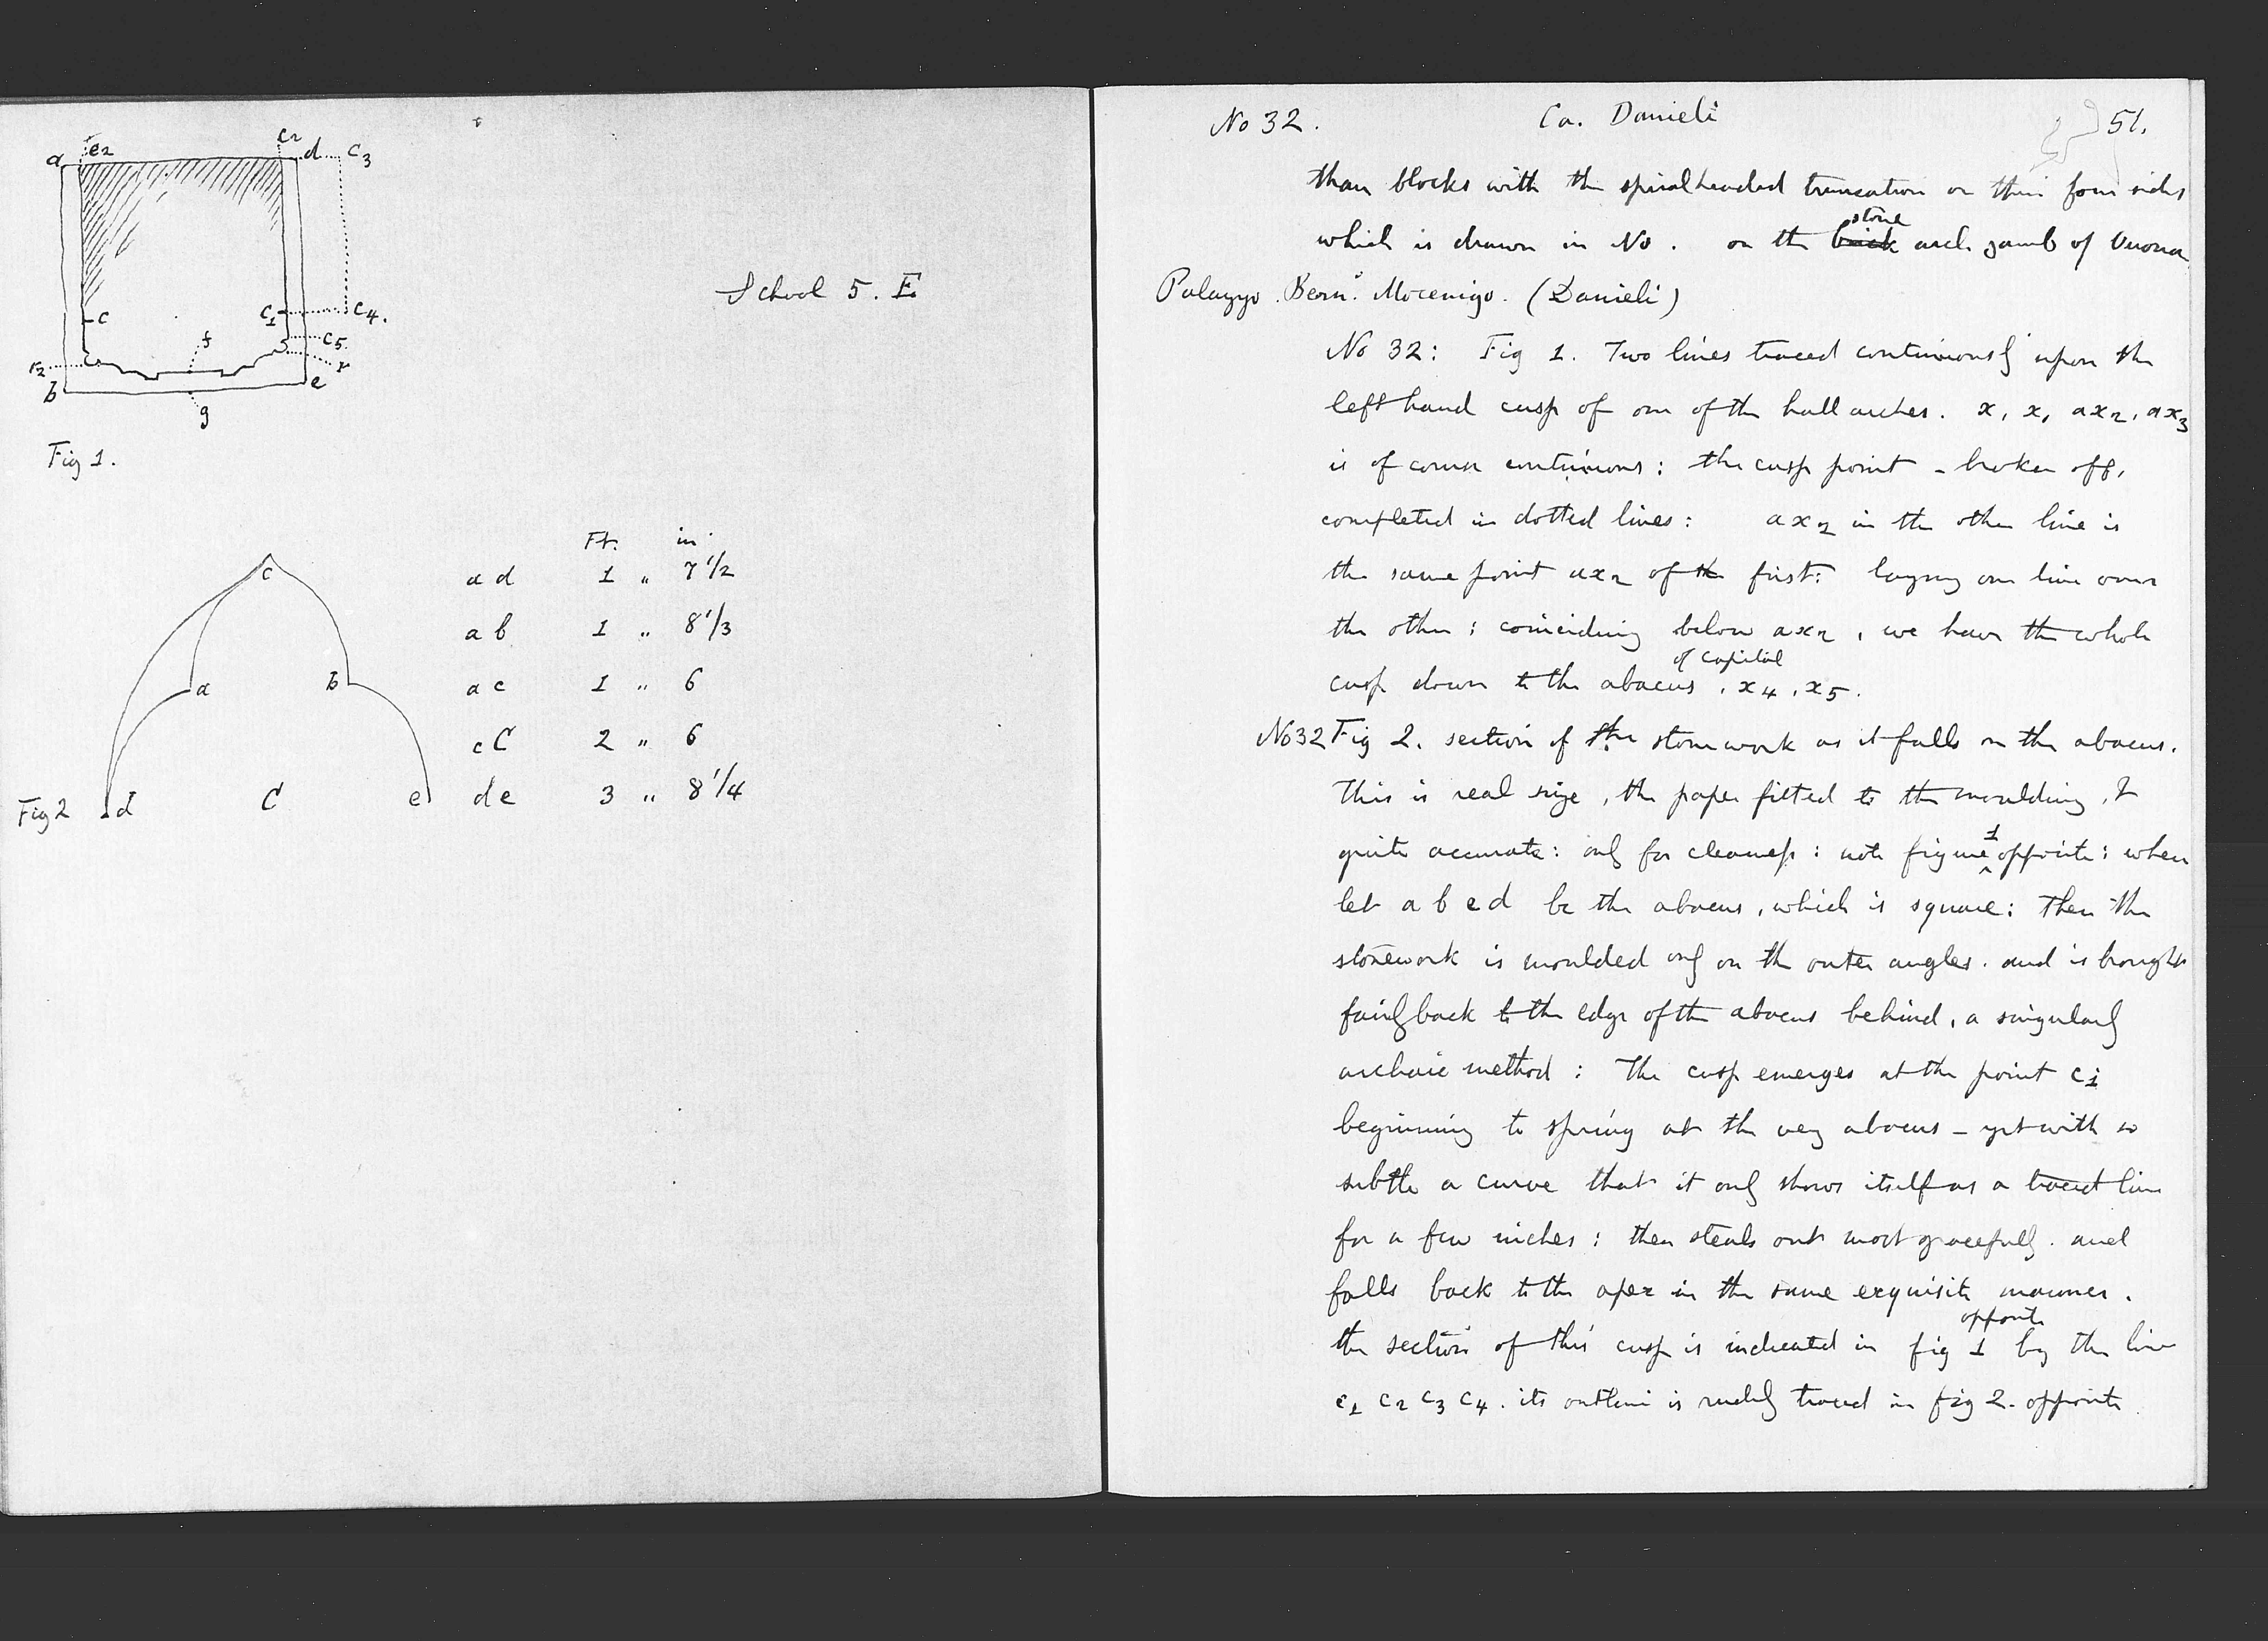 a e2 c2 d c3
c c1 c4.
f c5
r2 r
b e
g
Fig 1.
School 5. E
Ft. in
c
a d 1 " 7 1/2
a b 1 " 8 1/3
a b
a c 1 " 6
c C 2 " 6
Fig 2 d C e d e 3 " 8 1/4
No 32. Ca. Danieli 51.
than blocks with the spiralheaded truncation on their four sides
stone
which is drawn in No . on the brick arch jamb of Verona
Palazzo. Bern.o Mocenigo. (Danieli)
No 32: Fig 1. Two lines traced continuously upon the
left hand cusp of one of the hall arches. x, x, ax2, ax3
is of course continuous: the cusp point - broken off,
completed in dotted lines: ax2 in the other line is
the same point ax2 of the first: laying one line over
the other; coinciding below ax2, we have the whole
of capital
cusp down to the abacus, x4, x5.
No32 Fig 2. section of the stonework as it falls on the abacus.
This is real size, the paper fitted to the moulding, &
1
quite accurate: only for clearness: note figure opposite: when
let a b e d be the abacus, which is square: then the
stonework is moulded only on the outer angles. and is brought
fairly back to the edge of the abacus behind, a singularly
archaic method: The cusp emerges at the point c1
beginning to spring at the very abacus - yet with so
subtle a curve that it only shows itself as a traced line
for a few inches: then steals out most gracefully. and
falls back to the apex in the same exquisite manner.
opposite
the section of this cusp is indicated in fig 1 by the line
c1 c2 c3 c4. its outline is rudely traced in fig 2. opposite